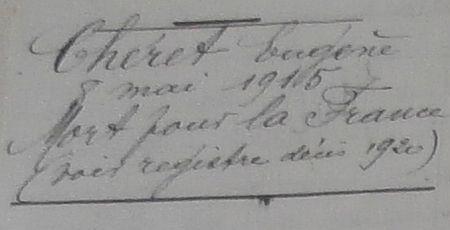 Chéret Eugène
8 mai 1915
Mort pour la France
(voir registre décès 1920)